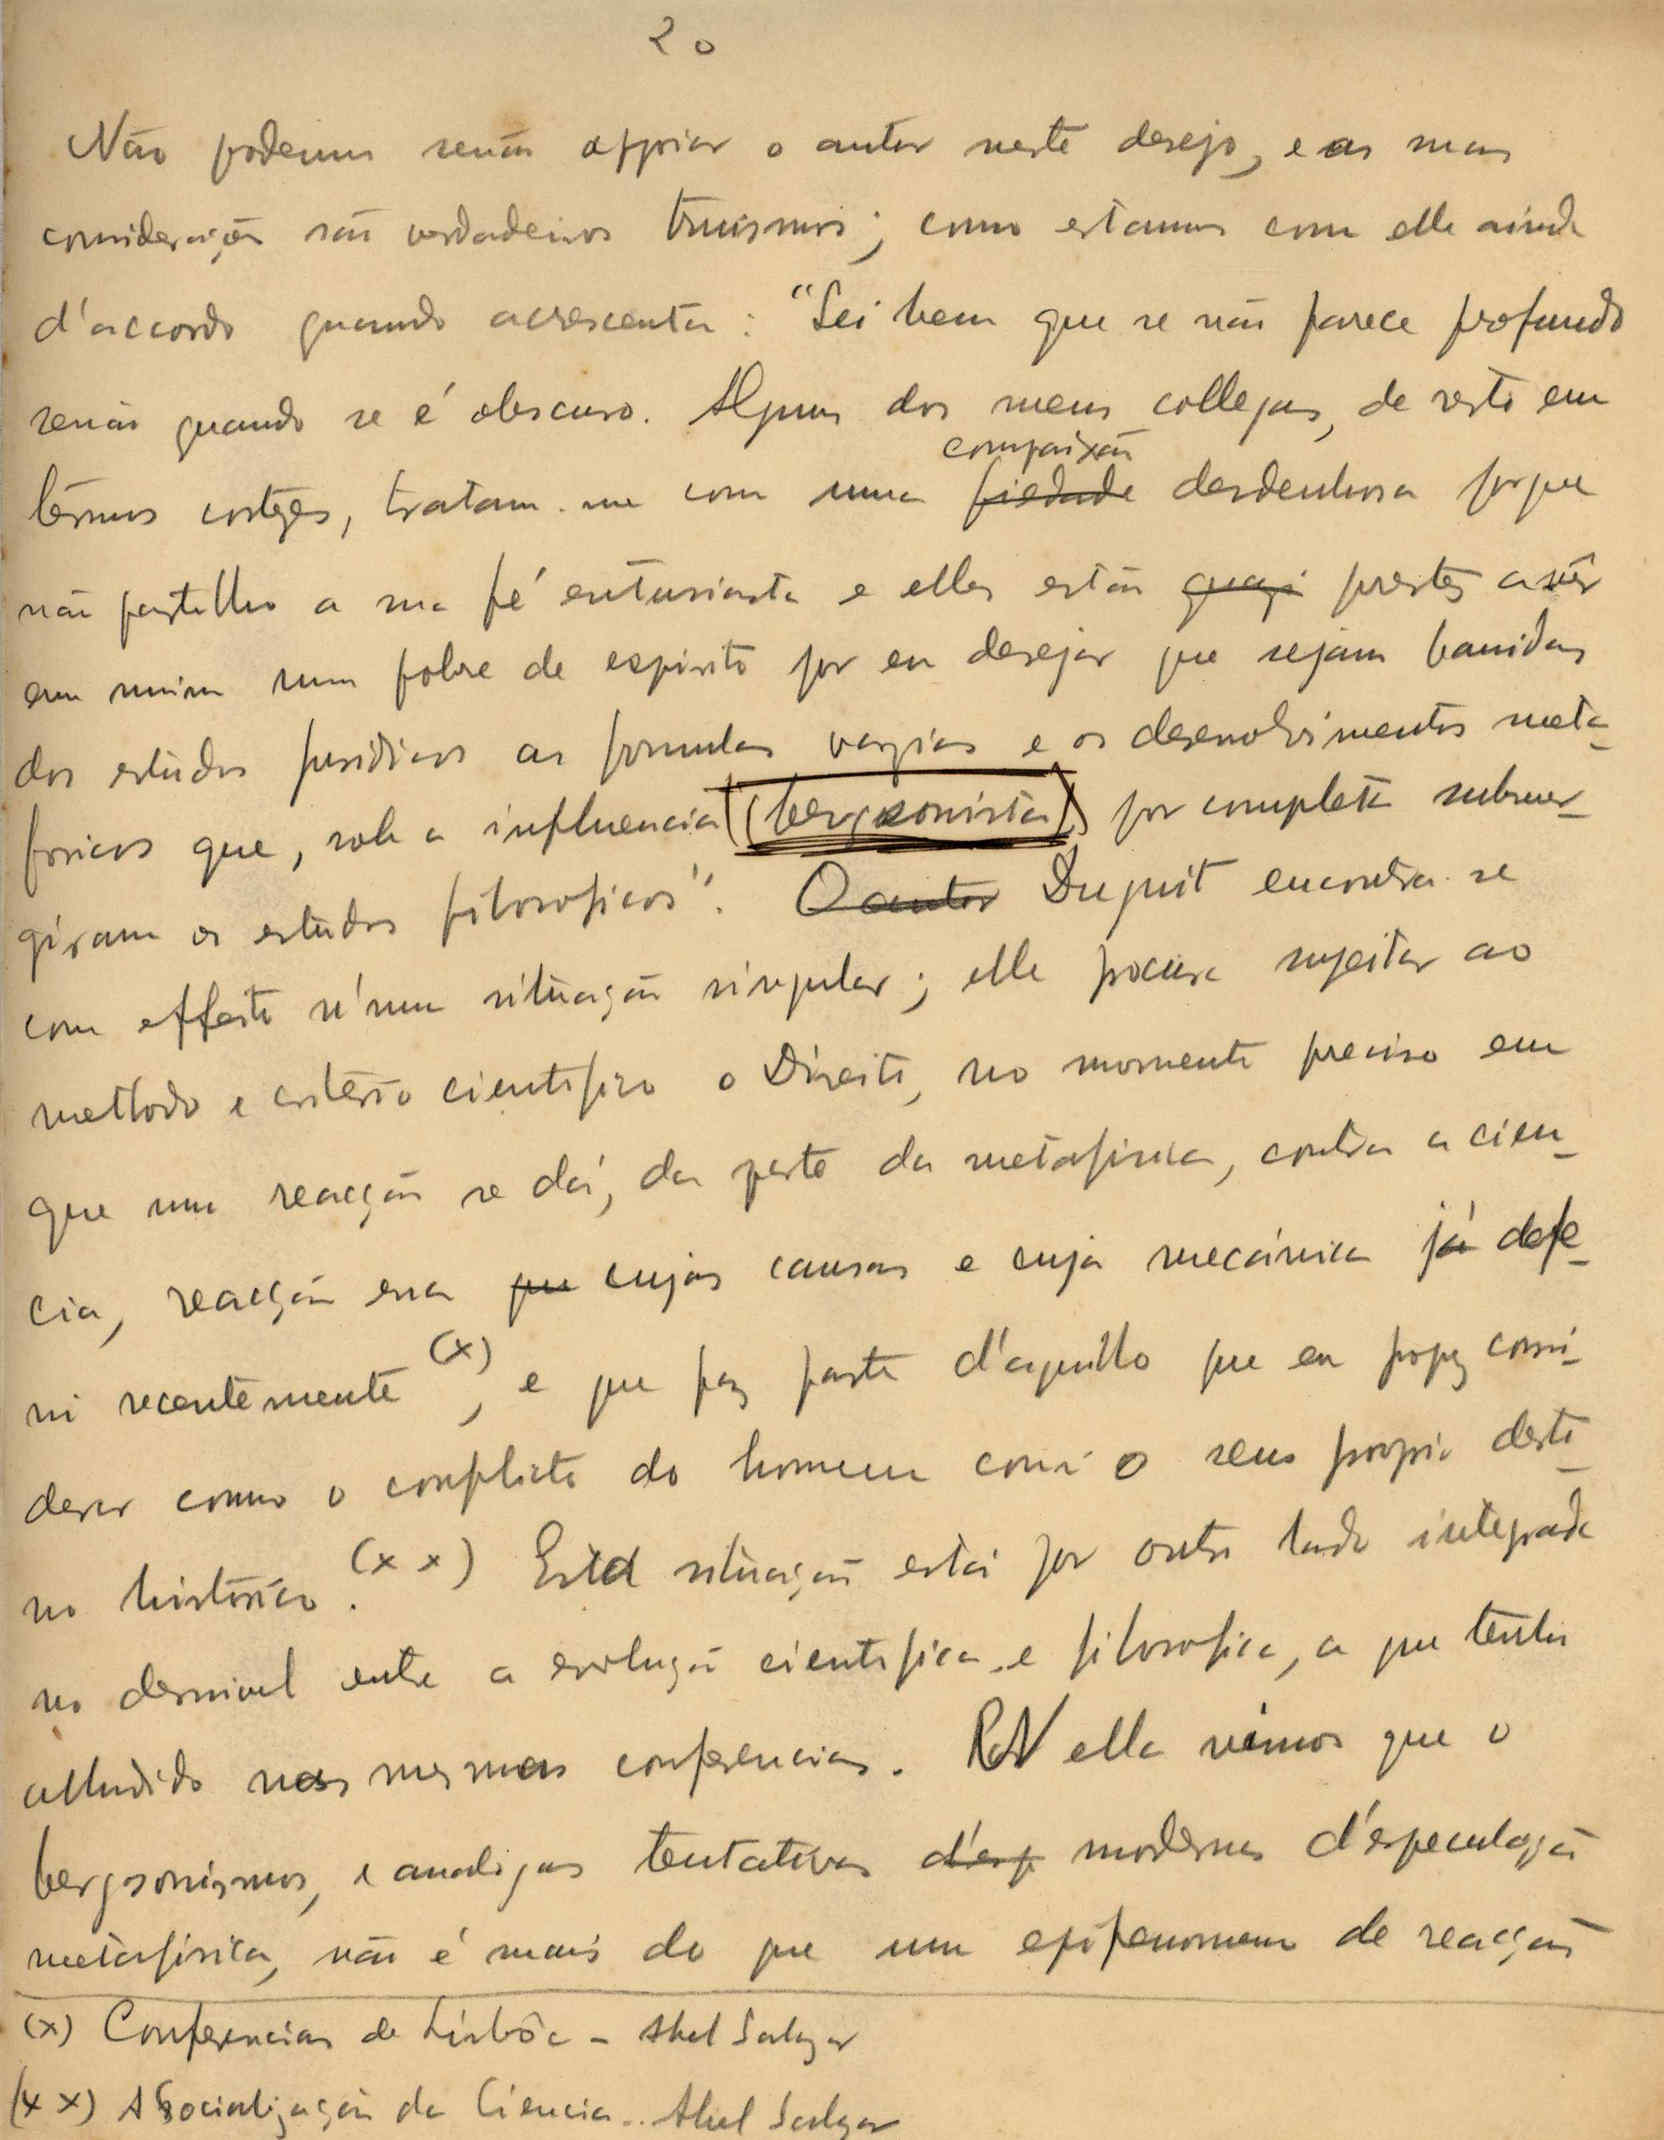 20
Não podemos senão apoiar o autor neste desejo, e as suas
considerações são verdadeiros truismos; como estamos com elle ainda
d'accordo quando acrescenta: "Sei bem que se não parece profundo
senão quando se é obscuro. Alguns dos meus collegas, de resto em
compaixão
têrmos cortezes, tratam-me com uma piedade desdenhosa porque
não partilho a sua fé entusiasta e elles estão quazi prestes a vêr
em mim um pobre de espirito por eu desejar que sejam banidas
dos estudos juridicos as formulas vazias e os desenvolvimentos meta-
foricos que, sob a influencia (bergsonista) por completo submer-
giram os estudos filosoficos". O autor Duguit encontra-se
com effeito n'uma situação singular; elle procura sujeitar ao
methodo e critério cientifico o Direito, no momento preciso em
que uma reacção se dá, da parte da metafisica, contra a cien-
cia, reacção essa que cujas causas e cuja mecánica já defe-
ni recentemente (x), e que faz parte d'aquillo que eu propuz consi-
derar como o conflicto do homem com o seu proprio desti-
no histórico. (x x) Esta situação está por outro lado integrada
no desnivel entre a evolução cientifica e filosofica, a que tenho
alludido nas mesmas conferencias. N'ella vimos que o
bergsonismo, e analogas tentativas d'esp modernas d'especulação
metafisica, não é mais do que um epifenomeno de reacção
(x) Conferencias de Lisbôa - Abel Salazar
(x x) A Socialização da Ciencia - Abel Salazar